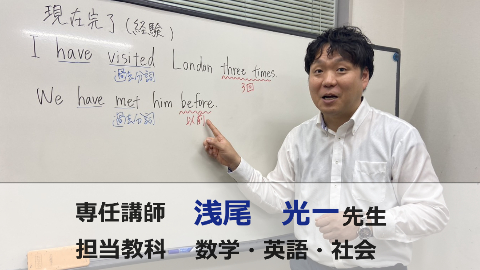 現在完了(経験)
I have visited London three times.
過去分詞 3回
We have met him before.
過去分詞 以前
専任講師 浅尾 光一先生
担当教科 数学・英語・社会